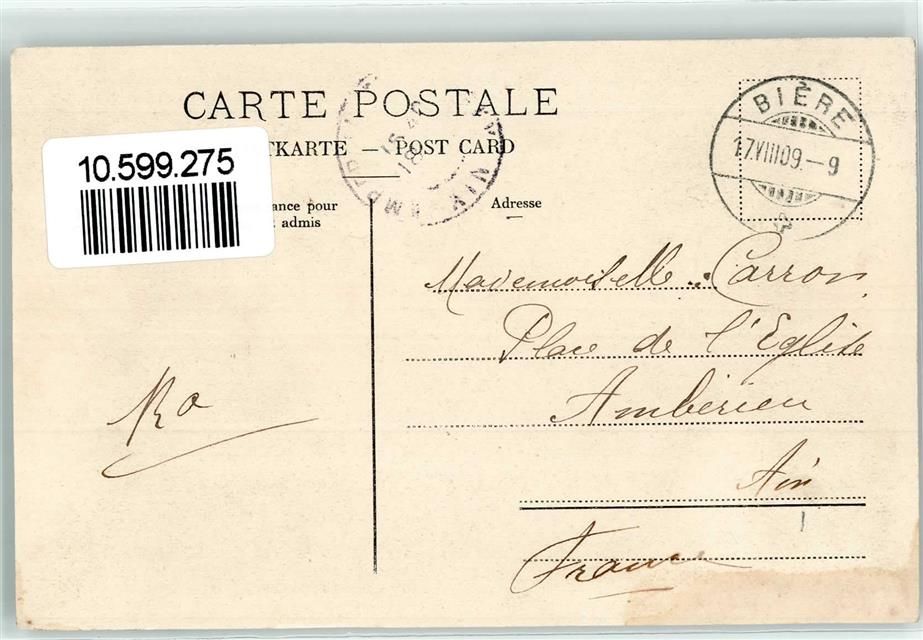 CARTE POSTALE
TKARTE — POST CARD
10.599.275
ance pour
admis
Adresse
BIÈRE
17.VIII09.-9
Mademoiselle Carron
Place de l'Eglise
Ambérieu
Ain
France
Ro